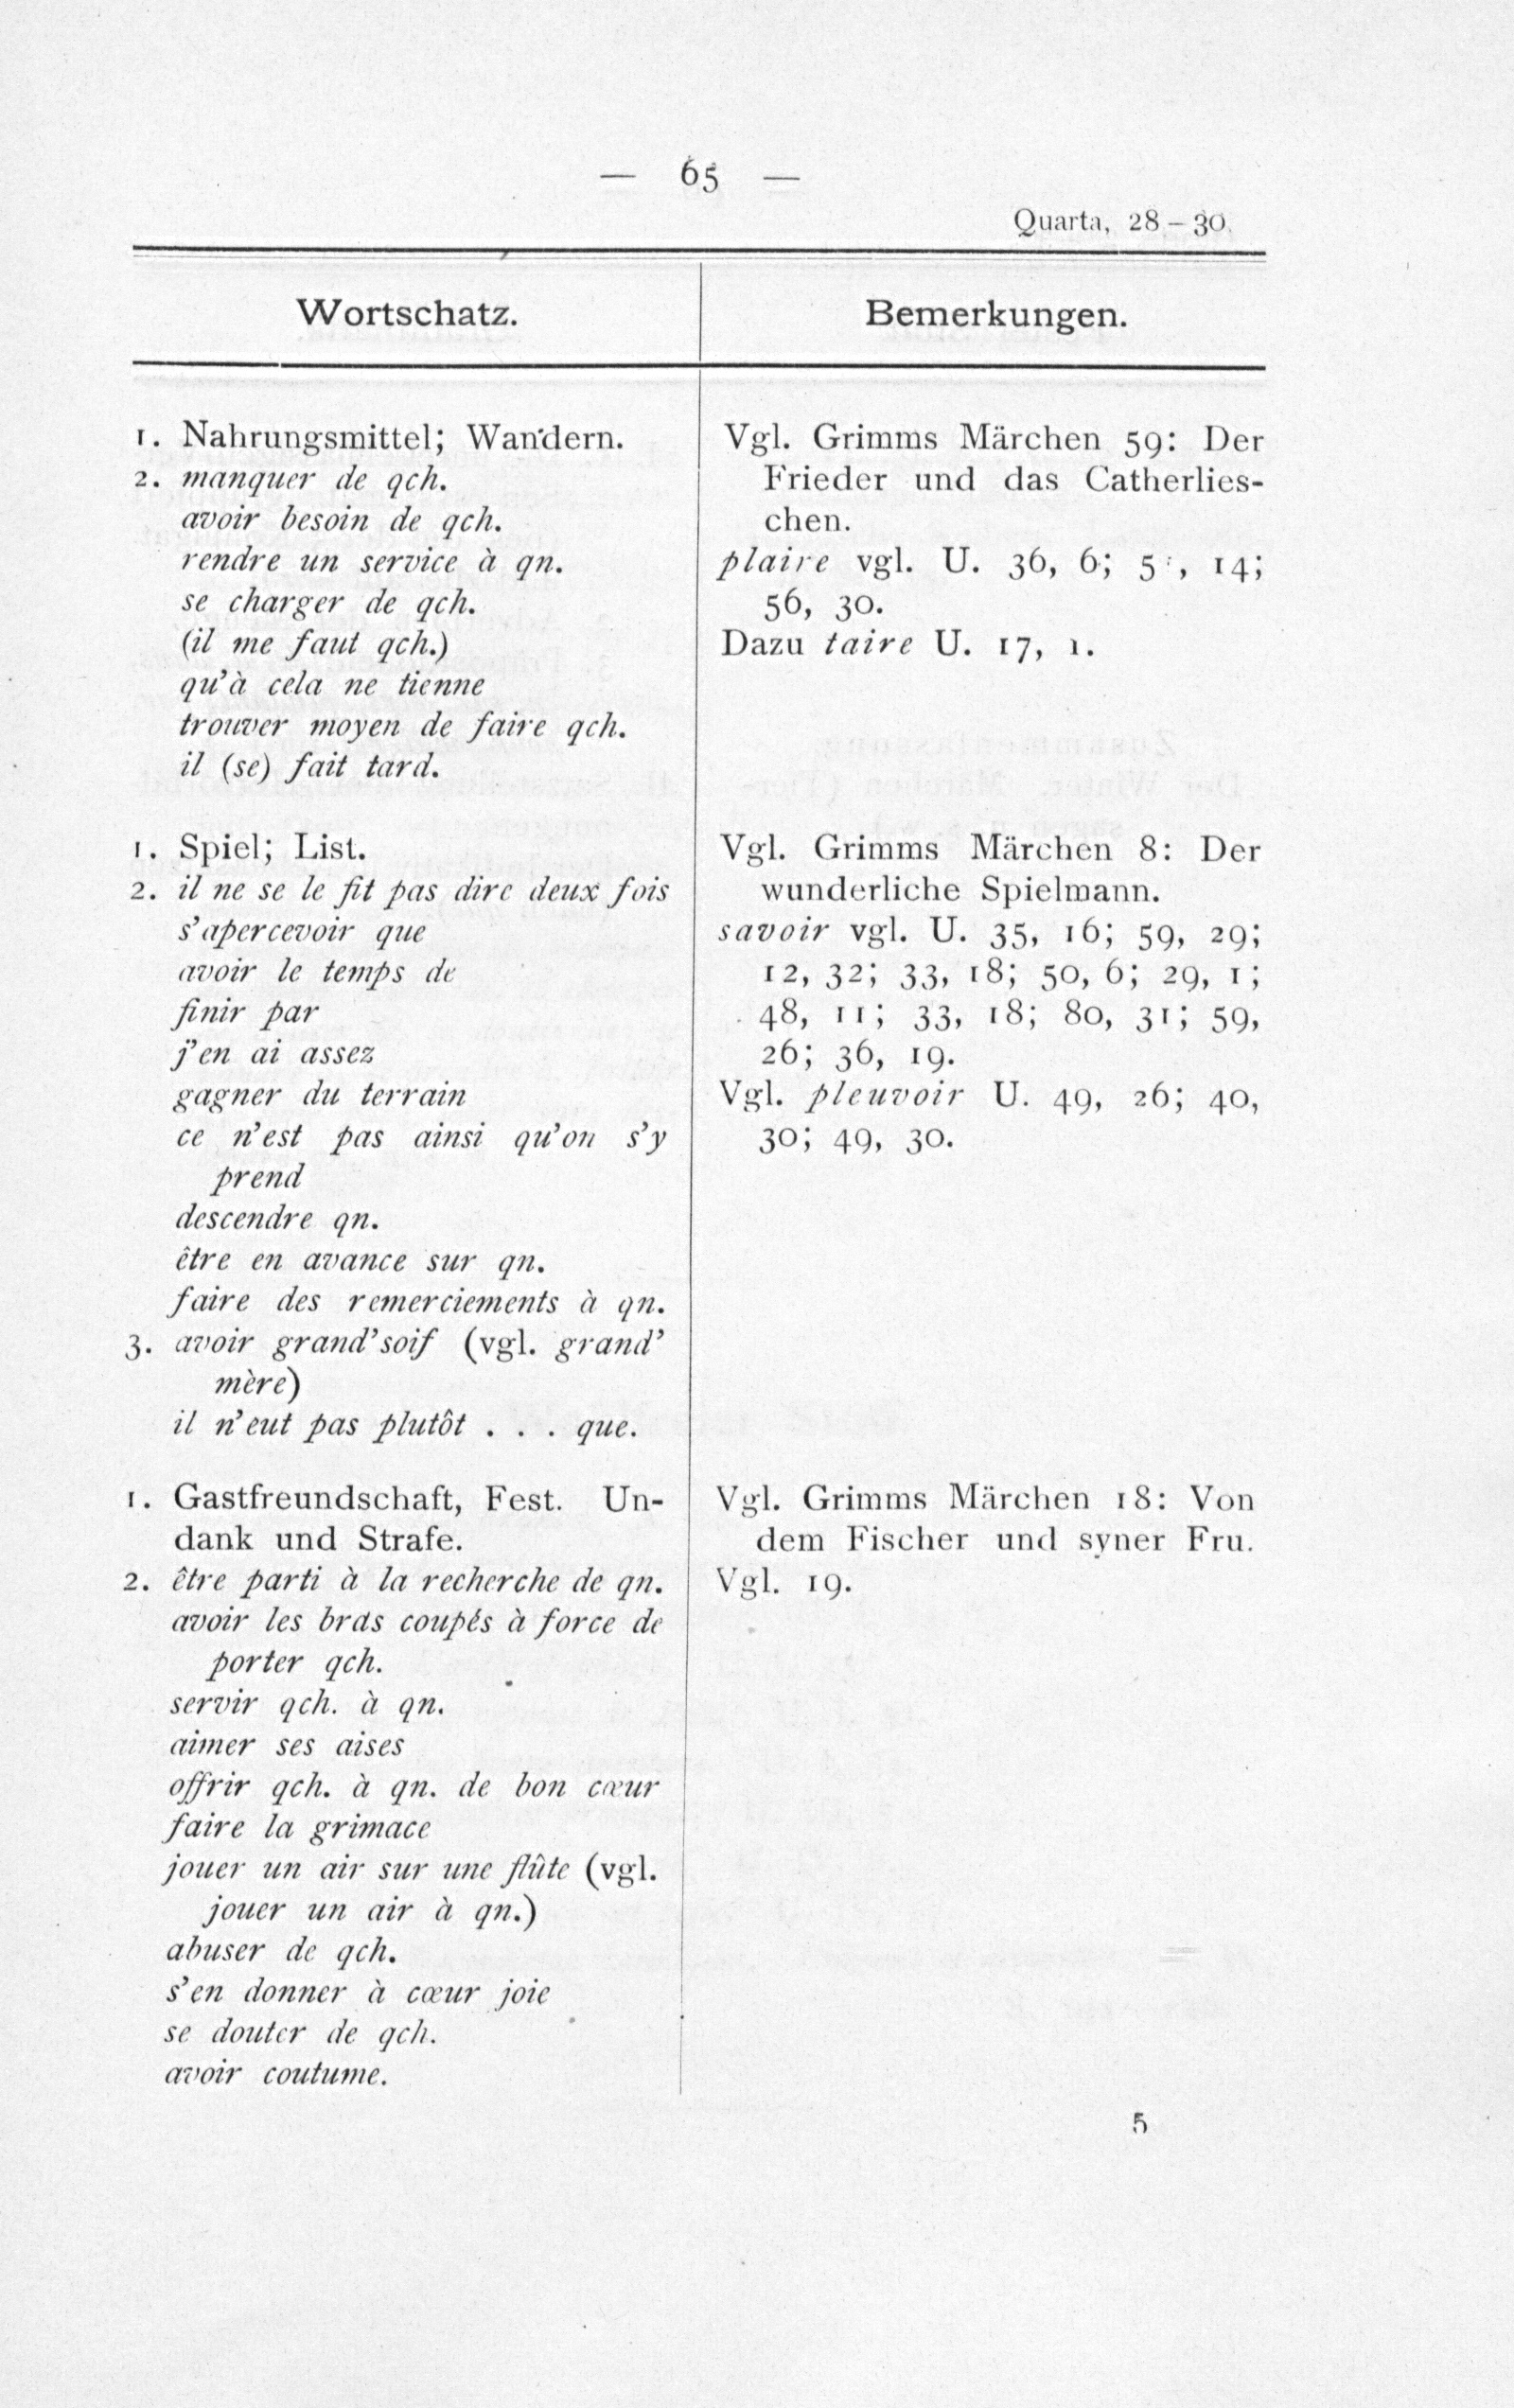 — 65 —
Quarta, 28–30.
Wortschatz.
Bemerkungen.
1. Nahrungsmittel; Wandern.
2. manquer de qch.
avoir besoin de qch.
rendre un service à qn.
se charger de qch.
(il me faut qch.)
qu’à cela ne tienne
trouver moyen de faire qch.
il (se) fait tard.
Vgl. Grimms Märchen 59: Der
Frieder und das Catherlies-
chen.
plaire vgl. U. 36, 6; 5 , 14;
56, 30.
Dazu taire U. 17, 1.
1. Spiel; List.
2. il ne se le fit pas dire deux fois
s’apercevoir que
avoir le temps de
finir par
j’en ai assez
gagner du terrain
ce n’est pas ainsi qu’on s’y
prend
descendre qn.
être en avance sur qn.
faire des remerciements à qn.
3. avoir grand’soif (vgl. grand’
mère)
il n’eut pas plutôt . . . que.
Vgl. Grimms Märchen 8: Der
wunderliche Spielmann.
savoir vgl. U. 35, 16; 59, 29;
12, 32; 33, 18; 50, 6; 29, 1;
48, 11; 33, 18; 80, 31; 59,
26; 36, 19.
Vgl. pleuvoir U. 49, 26; 40,
30; 49, 30.
1. Gastfreundschaft, Fest. Un-
dank und Strafe.
2. être parti à la recherche de qn.
avoir les bras coupés à force de
porter qch.
servir qch. à qn.
aimer ses aises
offrir qch. à qn. de bon cœur
faire la grimace
jouer un air sur une flûte (vgl.
jouer un air à qn.)
abuser de qch.
s’en donner à cœur joie
se douter de qch.
avoir coutume.
Vgl. Grimms Märchen 18: Von
dem Fischer und syner Fru.
Vgl. 19.
5